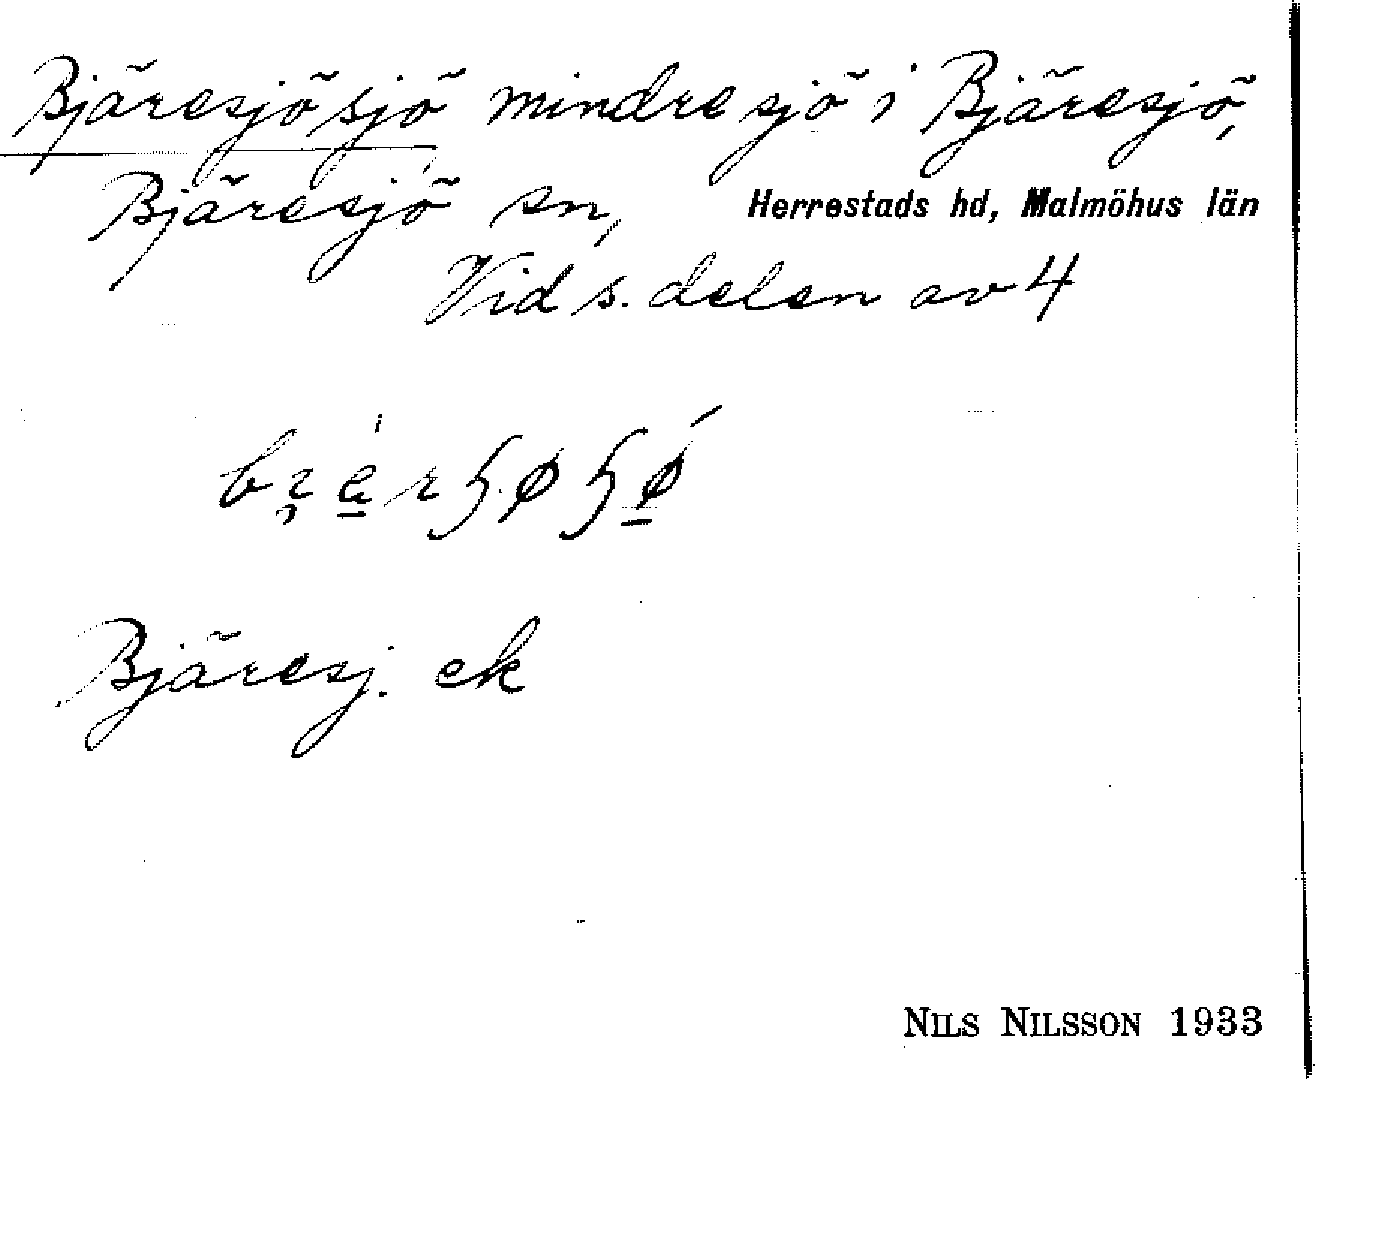 Bjäresjösjö mindre sjö i Bjäresjö,
Bjäresjö sn, Herrestads hd, Malmöhus län
Vid s. delen av 4
Bjäresj. ek
NILS NILSSON 1933